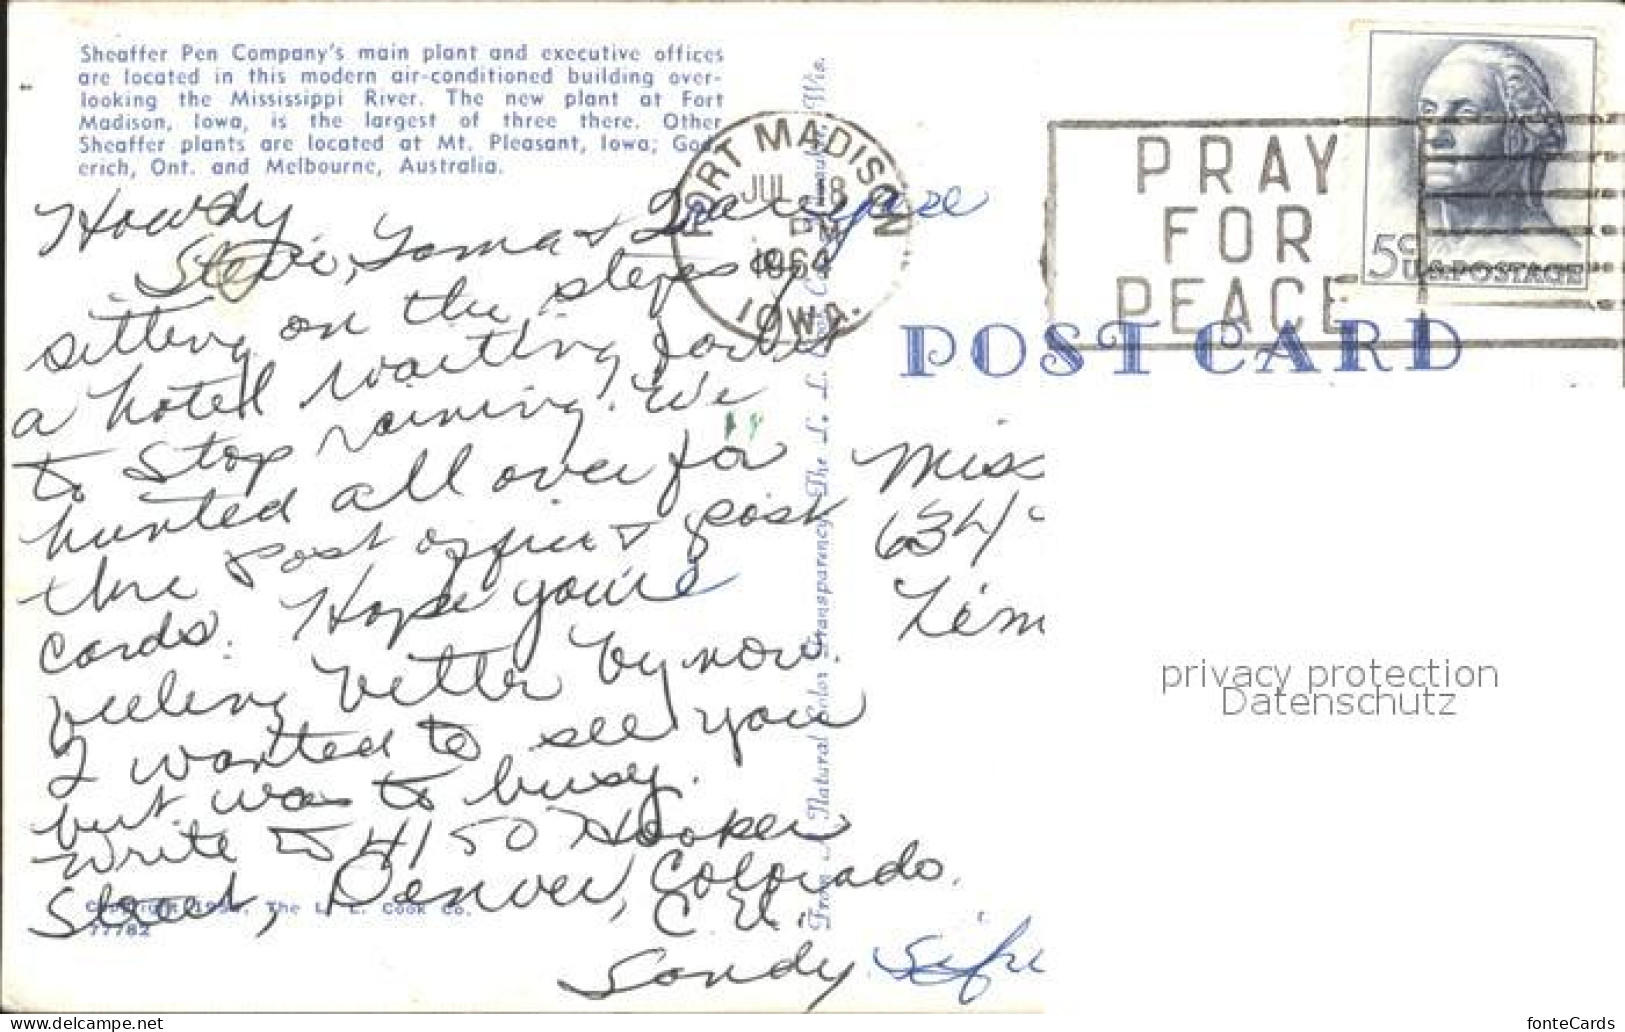 Sheaffer Pen Company's main plant and executive offices
are located in this modern air-conditioned building over-
looking the Mississippi River. The new plant at Fort
Madison, Iowa, is the largest of three there. Other
Sheaffer plants are located at Mt. Pleasant, Iowa; God-
erich, Ont. and Melbourne, Australia.
Howdy
Stevie, Yoma &
sitting on the steps of
a hotel waiting for it
to stop raining. We
hunted all over for
the post office & post
cards. Hope you're
feeling better by now.
I wanted to see you
but was to busy.
Write to 4150 Hooker
Street, Denver, Colorado.
C. U.
Sandy
Copyright, The L. L. Cook Co.
77782
From A Natural Color Transparency The L. L. Cook Co., Milwaukee, Wis.
FORT MADISON
JUL 18
PM
1964
IOWA.
PRAY
FOR
PEACE
5¢
U.S. POSTAGE
POST CARD
Miss
634
privacy protection
Datenschutz
www.delcampe.net
fonteCards